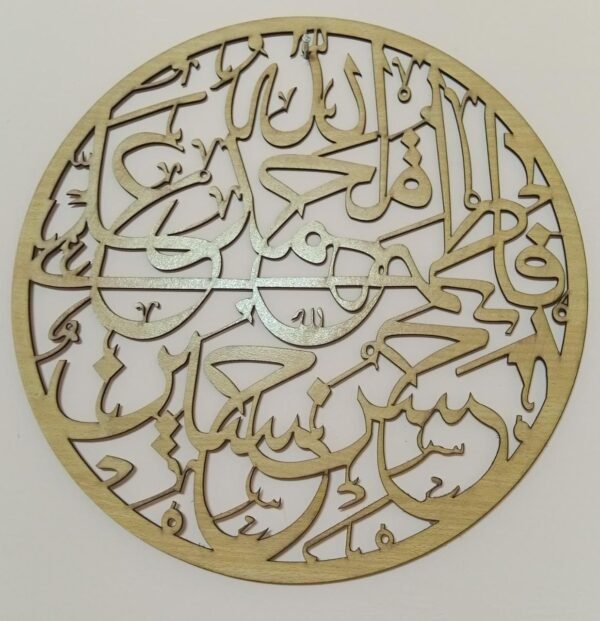 الله
محمد علی
فاطمة
حسن حسین